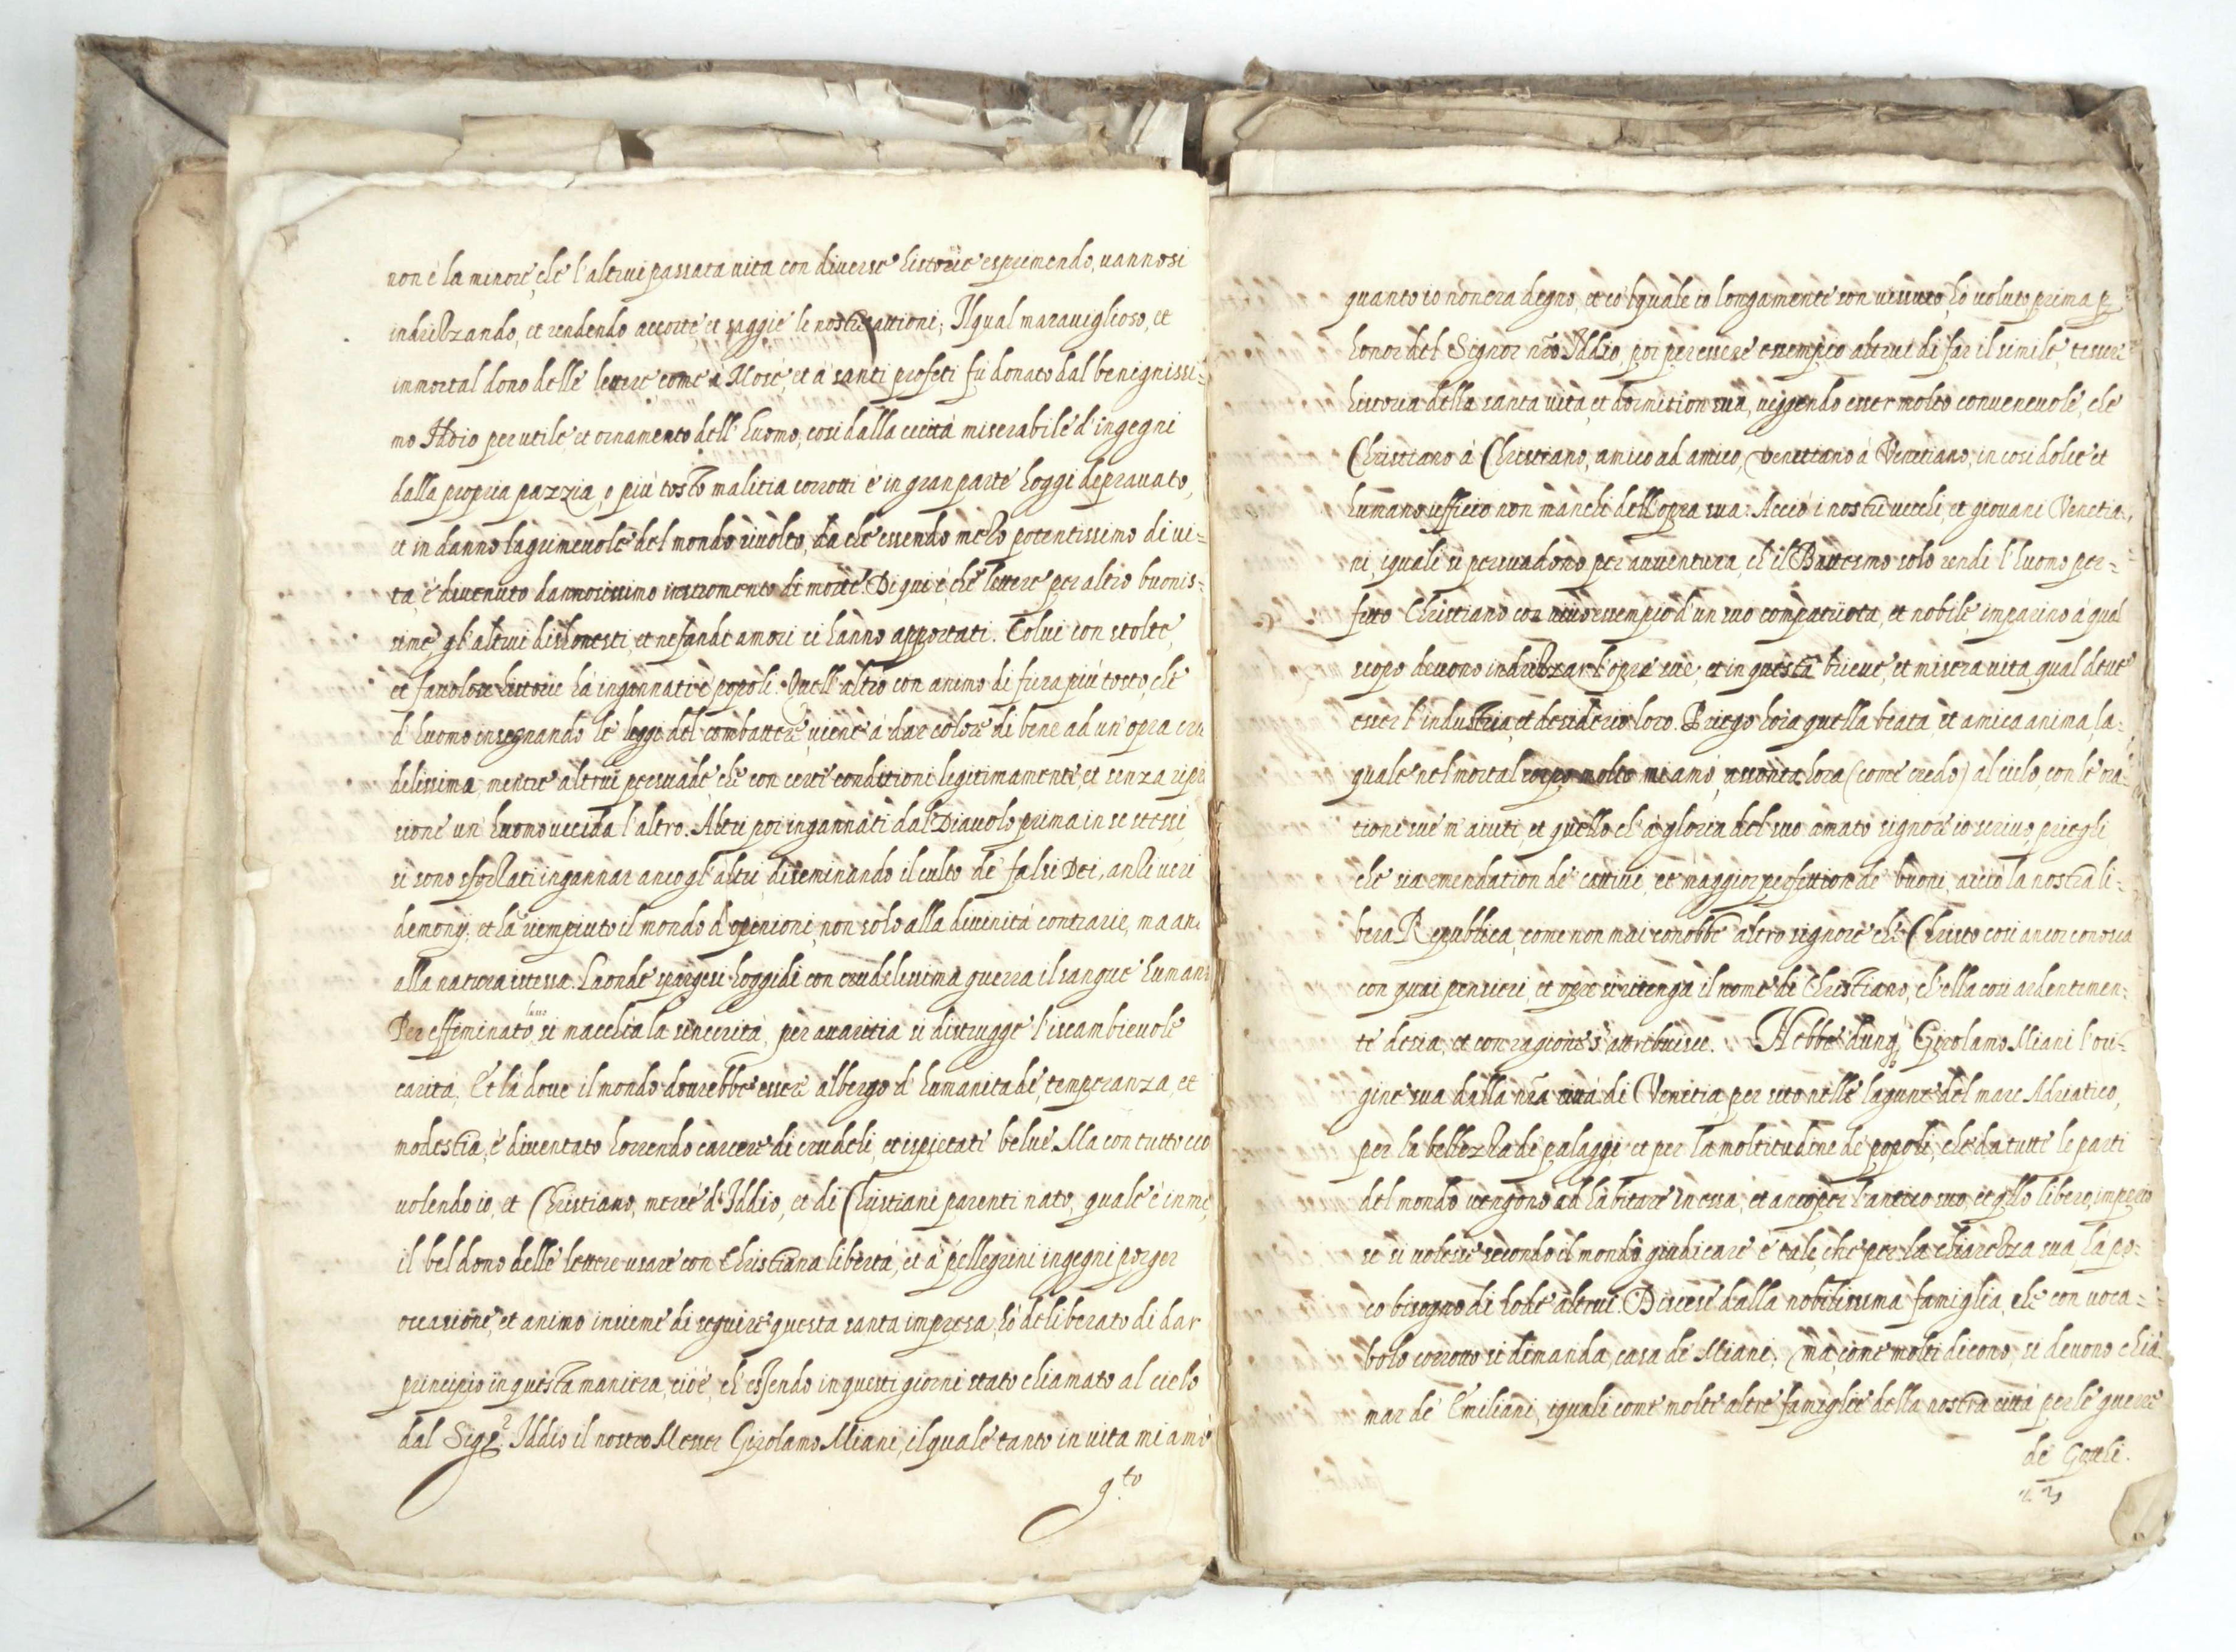 non è la minore, che l'altrui passata uita con diuerse historie esprimendo, uannosi
indrizzando, et rendendo accorte, et saggie le nostre attioni; Il qual marauiglioso, et
immortal dono delle lettere, come à Mosè, et à santi profeti fù donato dal benignissi=
mo Iddio per utile, et ornamento dell'huomo, cosi dalla cecità miserabile d'ingegni
dalla propria pazzia, o più tosto malitia corrotti è in gran parte hoggi deprauato,
et in danno lagrimeuole del mondo riuolto, da che essendo mezo potentissimo di ui=
ta, è diuenuto dannosissimo instromento di morte. Di qui è, che lettere per altro buonis=
sime, gl'altrui dishonesti, et nefandi amori ci hanno apportati. Colui con stolte,
et fauolose historie hà ingannati i popoli. Quell'altro con animo di fiera più tosto, che
d'huomo insegnando le leggi del combattere, uiene à dar colore di bene ad un'opra cru
delissima, mentre altrui persuade, che con certe conditioni legitimamente, et senza ripre
sione un huomo uccida l'altro. Altri poi ingannati dal Diauolo prima in se stessi,
si sono sforzati ingannar anco gl'altri, diseminando il culto de falsi Dei, anzi ueri
demonÿ, et hà riempiuto il mondo d'opinioni, non solo alla diuinità contrarie, ma an.
alla natura istessa. Laonde spargesi hoggidi con crudelissima guerra il sangue humano
Per effeminato lusso si macchia la sincerità, per auaritia si distrugge l'iscambieuole
carità, Et là doue il mondo dourebbe esser albergo d'humanitade, temperanza, et
modestia, è diuentato horrendo carcere di crudeli, et ispietati belue. Ma con tutto ciò
uolendo io, et Christiano, mercè d'Iddio, et di Christiani parenti nato, quale è in me,
il bel dono delle lettere usare con Christiana libertà, et à pellegrini ingegni porger
occasione, et animo insieme di seguire questa santa impresa, hò deliberato di dar
principio in questa maniera, cioè, ch'essendo in questi giorni stato chiamato al cielo
dal Sigr. Iddio il nostro Messer Girolamo Miani, il quale tanto in uita mi amò
q.to
quanto io non era degno, et co'l quale io longamente son uissuto, hò uoluto, prima p
honor del Signor nro Iddio, poi per essere essempio altrui di far il simile, tesser
historia della santa uita, et dormition sua, uiggendo esser molto conueneuole, che
Christiano à Christiano, amico ad amico, Venetiano à Venetiano, in cosi dolce et
humano ufficio non manchi dell'opra sua: Acciò i nostri uecchi, et giouani Venetia,
ni, i quali si persuadono per auuentura, ch'il Battesmo solo rendi l'huomo per=
fetto Christiano con essempio d'un suo compatriota, et nobile, imparino à qual
scopo deuono indrizzar l'opre sue; et in questa brieue, et misera uita, qual deue
esser l'industria, et desiderio loro. Priego hora quella beata, et amica anima, la=
quale nel mortal corpo molto mi amò, assonta hora (come credo) al cielo, con le ora=
tioni sue m'aiuti, et quello ch'à gloria del suo amato signore io scriuo, prieghi,
che sia emendation de' cattiui, et maggior perfettion de' buoni, acciò la nostra li=
bera Republica, come non mai conobbe altro signore che Christo cosi ancor conosca
con quai pensieri, et opre si ritenga il nome di Christiano, ch'ella cosi ardentemen=
te desia, et con ragione s'attribuisce. Hebbe dunq Girolamo Miani l'ori=
gine sua dalla nra città di Venetia, per sito nelle lagune del mare Adriatico,
per la bellezza de palaggi, et per la moltitudine de popoli, che da tutte le parti
del mondo uengono ad habitare in essa, et anco per l'antico suo, et qllo libero, imperio
se si uolesse secondo il mondo giudicare è tale, che per la chiarezza sua hà po=
co bisogno di lode altrui. Discese dalla nobilissima famiglia, che con uoca=
bolo corrotto si dimanda, casa de Miani; ma come molti dicono, si deuono chia
mar de' Emiliani, i quali come molte altre famiglie della nostra città per le guerre
de' Gotthi.